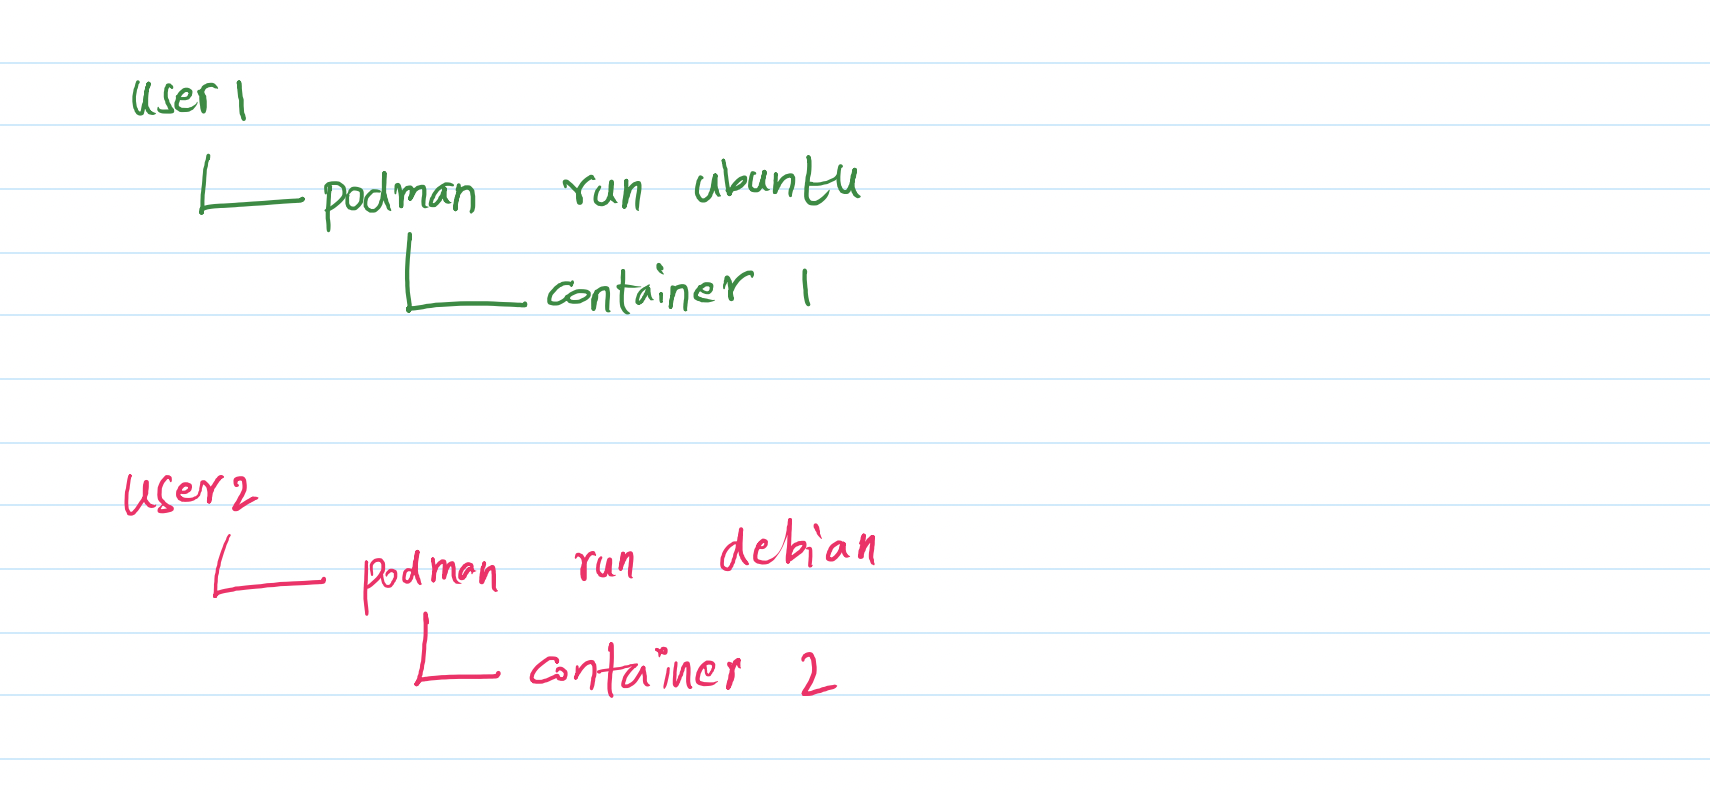 user 1
podman run ubuntu
container 1
user2
podman run debian
container 2